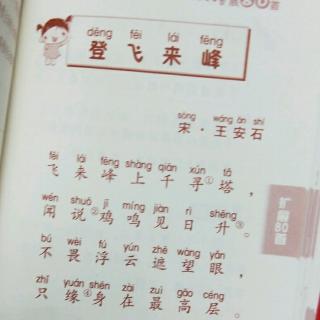 展80首
dēng fēi lái fēng
登飞来峰
sòng wáng ān shí
宋·王安石
fēi lái fēng shàng qiān xún tǎ
飞来峰上千寻①塔，
wén shuō jī míng jiàn rì shēng
闻说②鸡鸣见日升③。
bú wèi fú yún zhē wàng yǎn
不畏浮云遮望眼，
zhǐ yuán shēn zài zuì gāo céng
只缘④身在最高层。
扩展80首